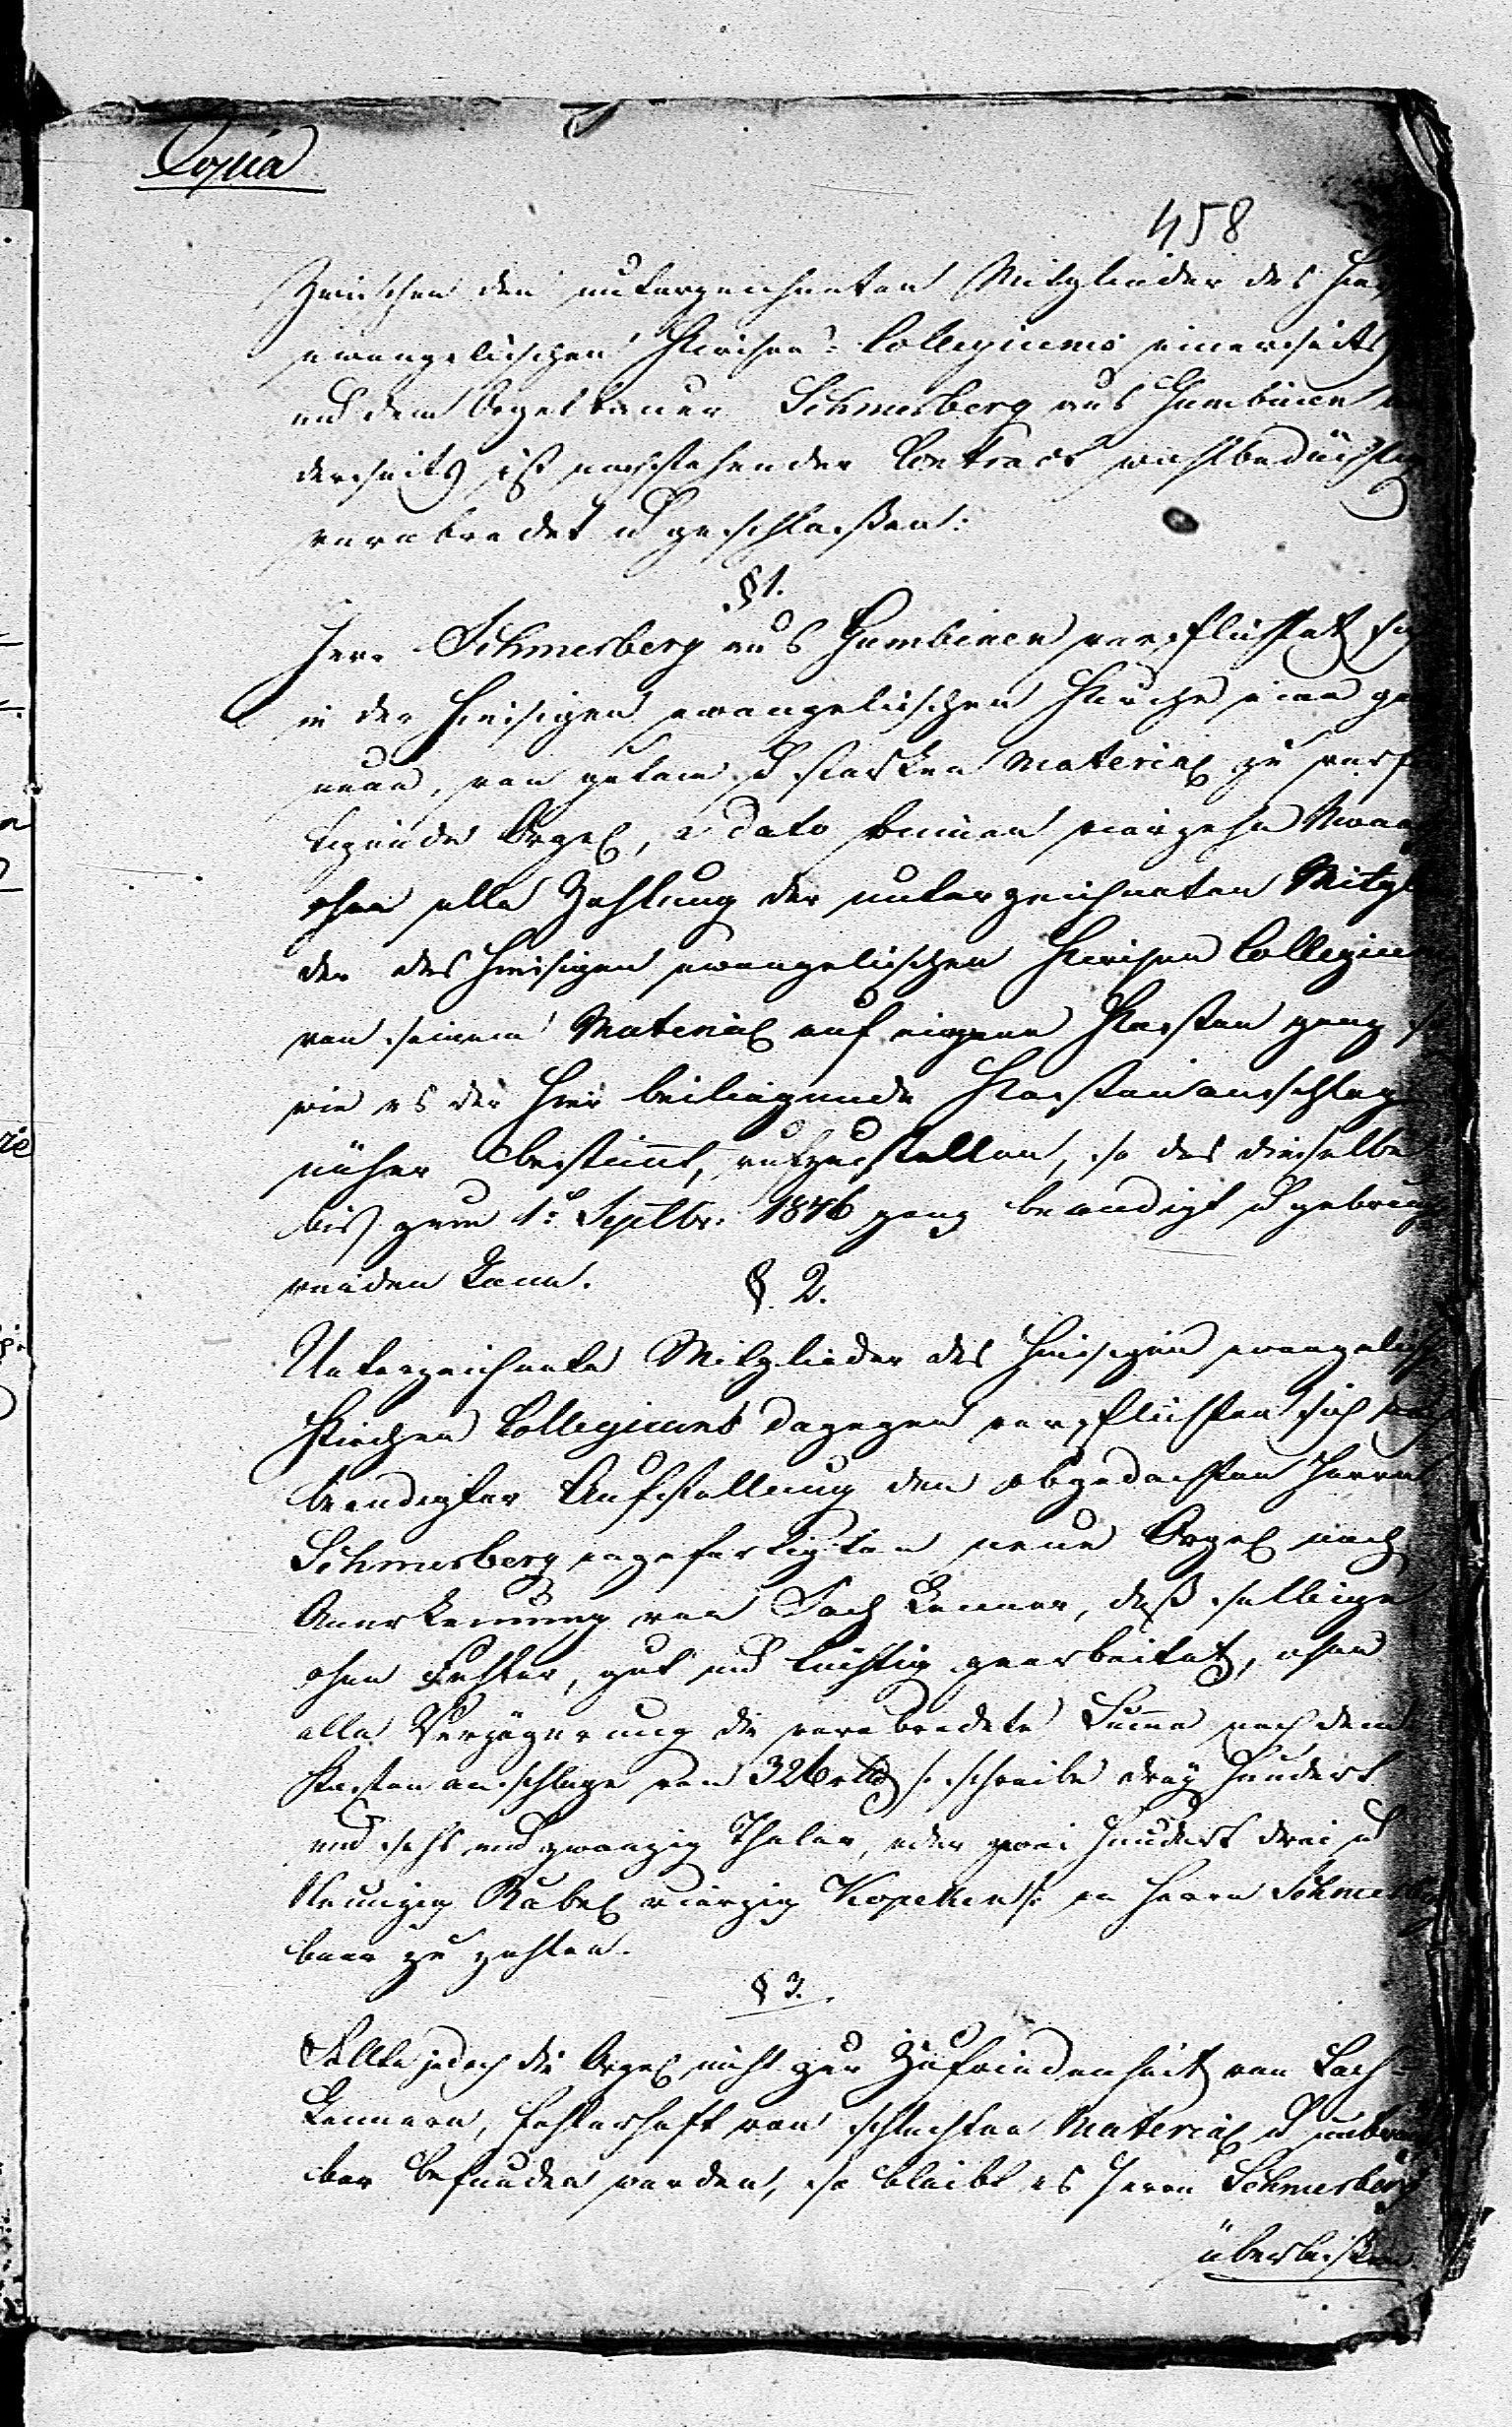 Copia
458
Zwischen den unterzeichneten Mitglieder des
evangelischen Kirchen-Collegiums einerseits
und dem Orgelbauer Schmerberg aus Gumbinen
derseits ist nachstehender Contract wohlbedächtig
verabredet u geschlossen:
§ 1.
Herr Schmerberg aus Gumbinen verpflichtet sich
in der hiesigen evangelischen Kirche eine
neue, von gutem u starken Material zu
Orgel, a dato binnen vierzehn
ohne alle Zahlung der unterzeichneten
der des hiesigen evangelischen Kirchen Collegiums
von seinem Material auf eigene Kosten ganz so
wie es der hier beiliegende Kostenanschlag
näher bestimt, aufzustellen, so das dieselbe
bis zum 1: Septbr: 1846 ganz beendigt u
werden kann.
§. 2.
Unterzeichnete Mitglieder des hiesigen
Kirchen Collegiums dagegen verpflichten sich nach
beendigter Aufstellung den obgedachten Herrn
Schmerberg angefertigten neue Orgel nach
Anerkennung von Sach Kenner, daß selbige
ohne Fehler, gut und tüchtig gearbeitet, ohne
alle Verzögerung die verabredete Suma nach dem
Kostenanschlage von 326 schreibe drey hundert
und sechs und zwanzig Thaler, oder zwei hundert drei u
Neunzig Rubel vierzig Kopeken an Herrn Schmerberg
baar zu zahlen.
§ 3.
Sollte jedoch die Orgel nicht zur Zufriedenheit von Sach-
Kennern, fehlerhaft von schlechten Material u
bar befunden werden, so bleibt es Herrn Schmerberg
überlassen